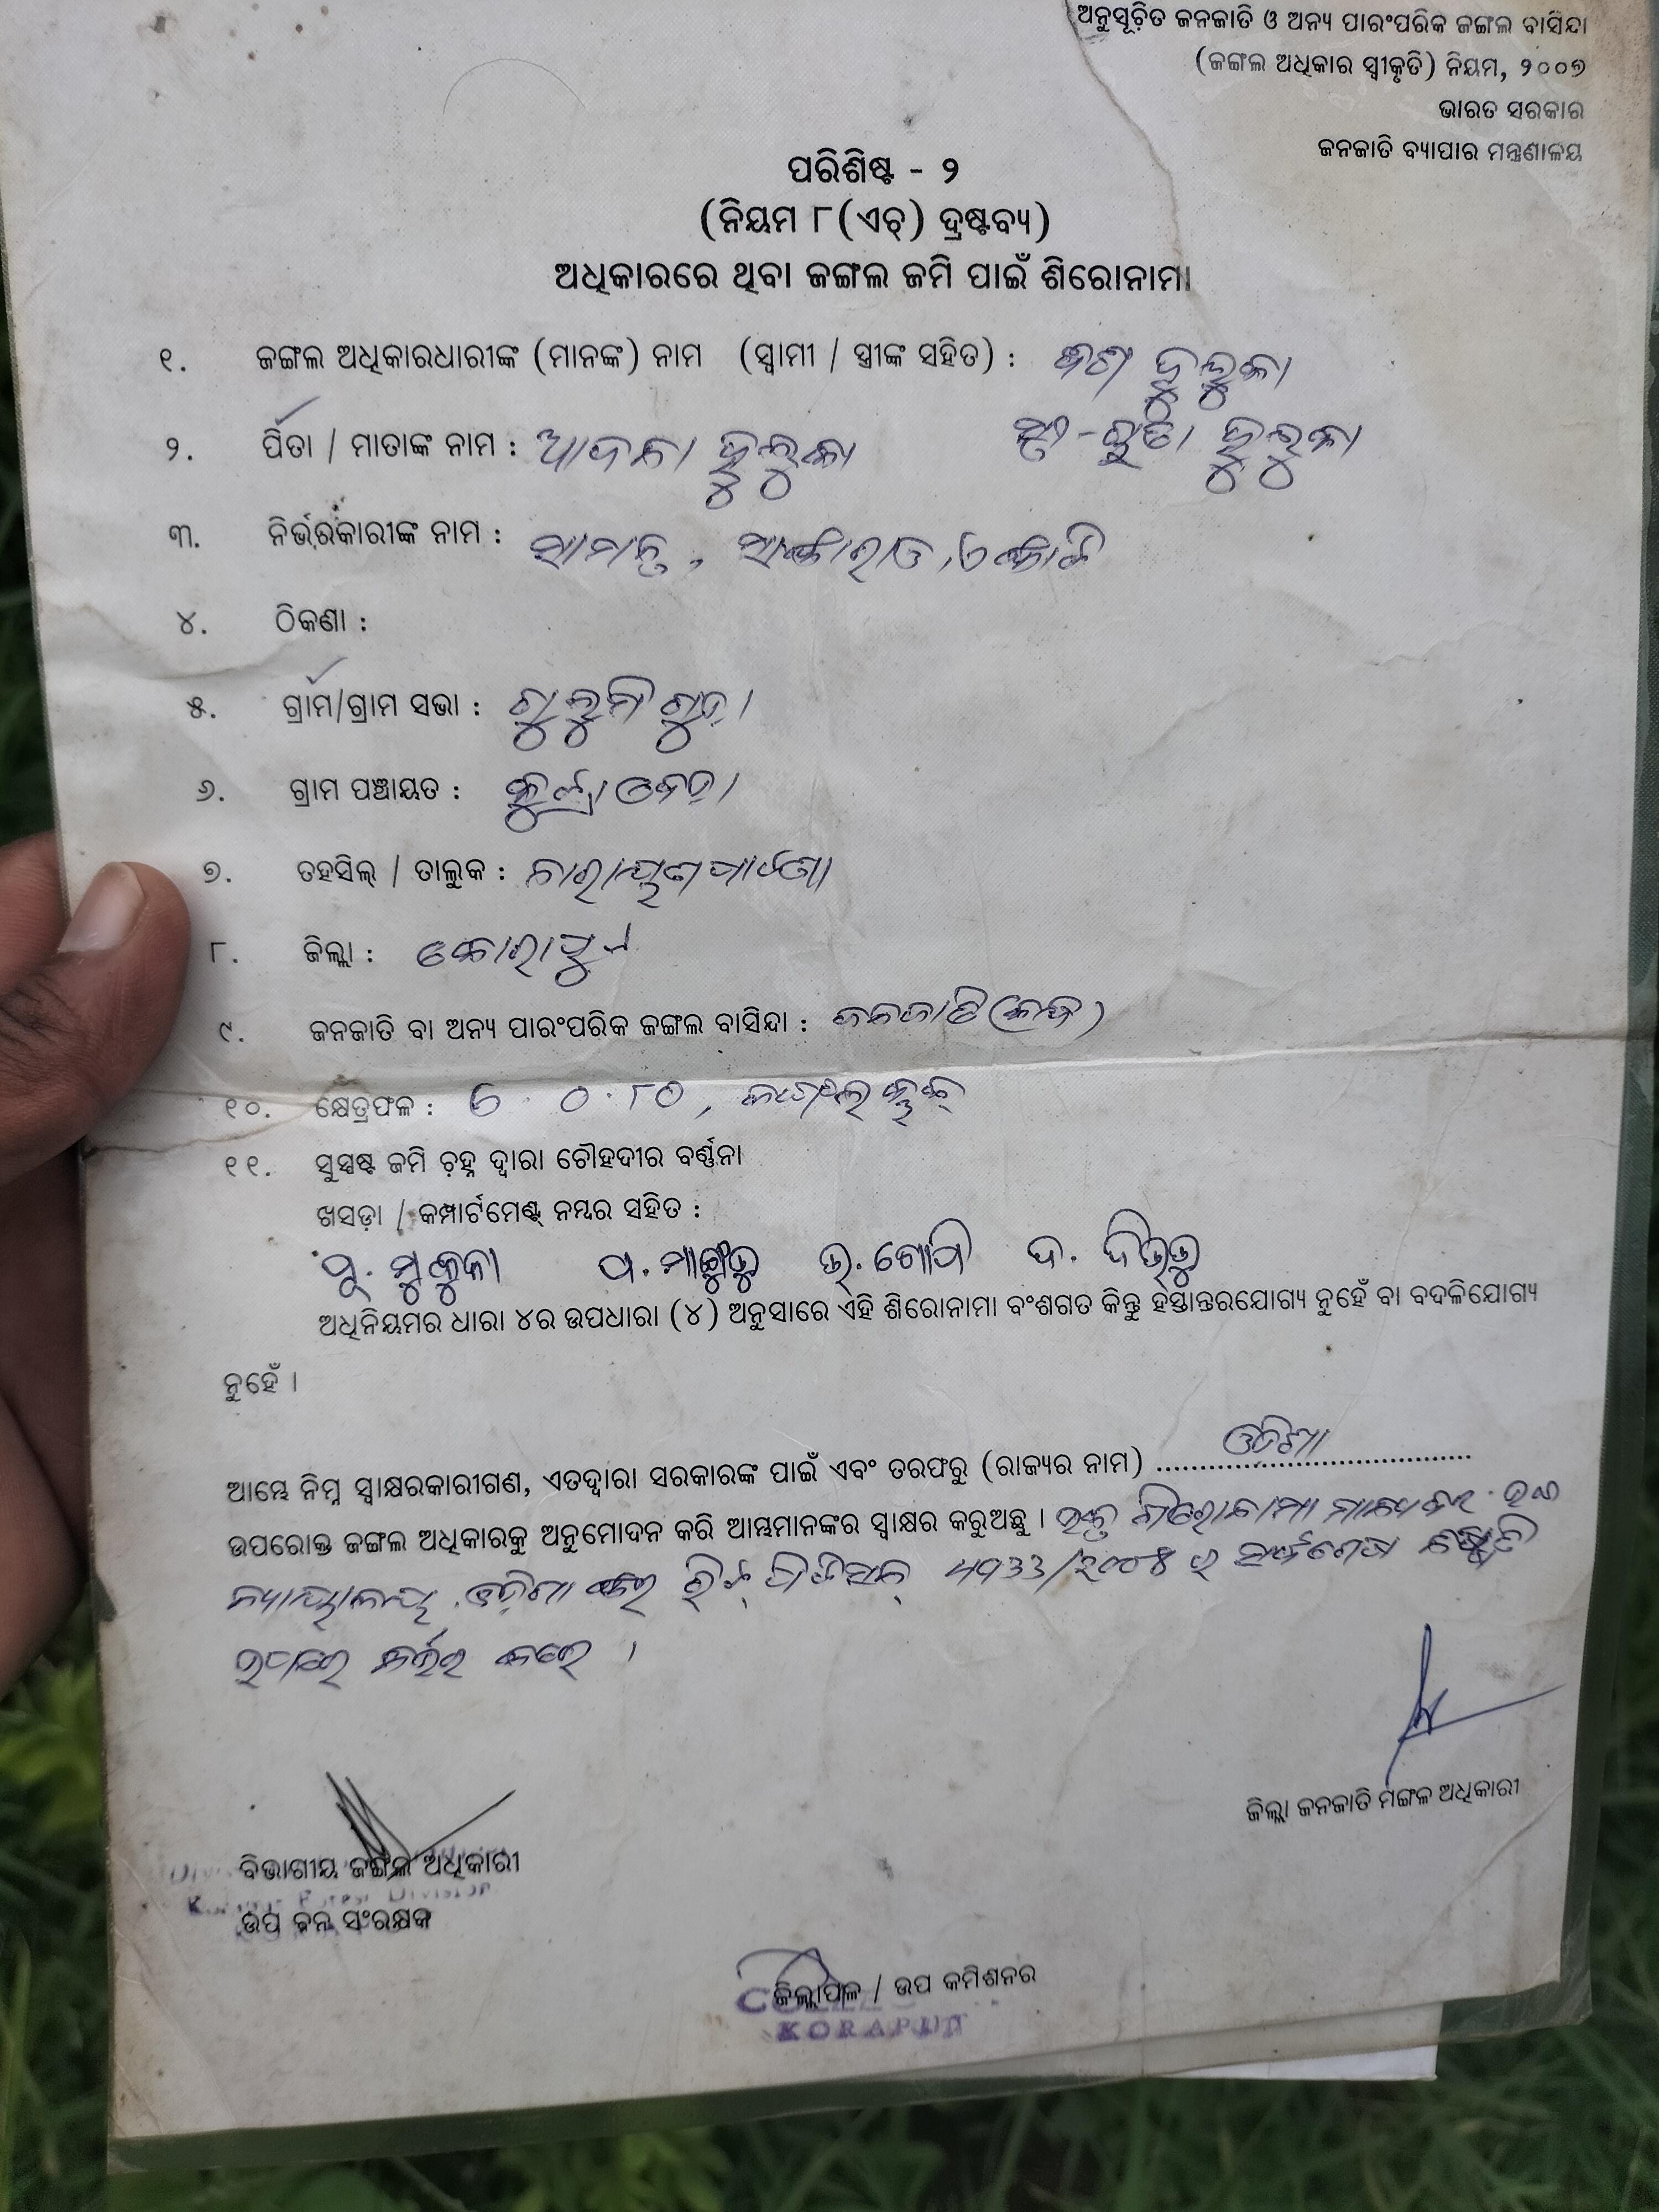 ଅନୁସୂଚିତ ଜନଜାତି ଓ ଅନ୍ୟ ପାରଂପରିକ ଜଙ୍ଗଲ ବାସିନ୍ଦା
(ଜଙ୍ଗଲ ଅଧିକାର ସ୍ୱୀକୃତି) ନିୟମ, ୨୦୦୭
ଭାରତ ସରକାର
ଜନଜାତି ବ୍ୟାପାର ମନ୍ତ୍ରଣାଳୟ
ପରିଶିଷ୍ଟ - ୨
(ନିୟମ ୮(ଏଚ୍) ଦ୍ରଷ୍ଟବ୍ୟ)
ଅଧିକାରରେ ଥିବା ଜଙ୍ଗଲ ଜମି ପାଇଁ ଶିରୋନାମା
୧. ଜଙ୍ଗଲ ଅଧିକାରଧାରୀଙ୍କ (ମାନଙ୍କ) ନାମ (ସ୍ୱାମୀ / ସ୍ତ୍ରୀଙ୍କ ସହିତ) : ହୁଲୁକା
୨. ପିତା / ମାତାଙ୍କ ନାମ : ହୁଲୁକା ସ୍ତ୍ରୀ- ହୁଲୁକା
୩. ନିର୍ଭରକାରୀଙ୍କ ନାମ : ସାମନ୍ତ,
୪. ଠିକଣା :
୫. ଗ୍ରାମ/ଗ୍ରାମ ସଭା : ଗୁଲୁମିଗୁଡ଼ା
୬. ଗ୍ରାମ ପଞ୍ଚାୟତ :
୭. ତହସିଲ୍ / ତାଲୁକ : ନାରାୟଣପାଟଣା
୮. ଜିଲ୍ଲା : କୋରାପୁଟ
୯. ଜନଜାତି ବା ଅନ୍ୟ ପାରଂପରିକ ଜଙ୍ଗଲ ବାସିନ୍ଦା : ଜନଜାତି (କନ୍ଧ)
୧୦. କ୍ଷେତ୍ରଫଳ : ୦.୮୦,
୧୧. ସୁସ୍ପଷ୍ଟ ଜମି ଚିହ୍ନ ଦ୍ୱାରା ଚୌହଦୀର ବର୍ଣ୍ଣନା
ଖସଡ଼ା / କମ୍ପାର୍ଟମେଣ୍ଟ୍ ନମ୍ବର ସହିତ :
ପୂ. ମୁକୁକା ପ. ଉ. ଗୋପି ଦ.
ଅଧିନିୟମର ଧାରା ୪ର ଉପଧାରା (୪) ଅନୁସାରେ ଏହି ଶିରୋନାମା ବଂଶଗତ କିନ୍ତୁ ହସ୍ତାନ୍ତରଯୋଗ୍ୟ ନୁହେଁ ବା ବଦଳିଯୋଗ୍ୟ
ନୁହେଁ ।
ଆମ୍ଭେ ନିମ୍ନ ସ୍ୱାକ୍ଷରକାରୀଗଣ, ଏତଦ୍ଦ୍ୱାରା ସରକାରଙ୍କ ପାଇଁ ଏବଂ ତରଫରୁ (ରାଜ୍ୟର ନାମ) ଓଡିଶା
ଉପରୋକ୍ତ ଜଙ୍ଗଲ ଅଧିକାରକୁ ଅନୁମୋଦନ କରି ଆମ୍ଭମାନଙ୍କର ସ୍ୱାକ୍ଷର କରୁଅଛୁ । ଉକ୍ତ ଶିରୋନାମା ଉଚ୍ଚ
ନ୍ୟାୟାଳୟ, ଓଡ଼ିଶା ରିଟ୍ ପିଟିସନ୍ ୪୯୩୩/୨୦୦୮ ର
ନିର୍ଭର କରେ ।
ଜିଲ୍ଲା ଜନଜାତି ମଙ୍ଗଳ ଅଧିକାରୀ
ବିଭାଗୀୟ ଜଙ୍ଗଲ ଅଧିକାରୀ
Forest Division
ଉପ ବନ ସଂରକ୍ଷକ
ଜିଲ୍ଲାପାଳ / ଉପ କମିଶନର
KORAPUT